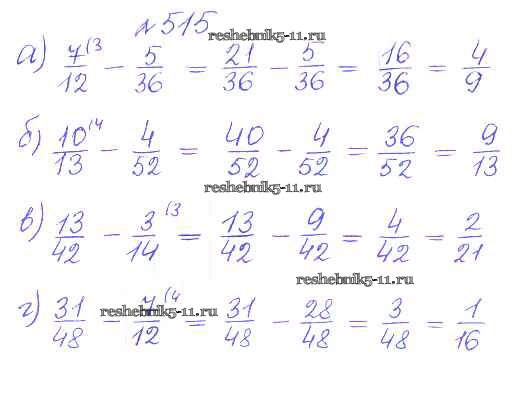 №515
reshebnik5-11.ru
а) 7/12 (3 - 5/36 = 21/36 - 5/36 = 16/36 = 4/9
б) 10/13 (4 - 4/52 = 40/52 - 4/52 = 36/52 = 9/13
reshebnik5-11.ru
в) 13/42 - 3/14 (3 = 13/42 - 9/42 = 4/42 = 2/21
reshebnik5-11.ru
г) 31/48 - 7/12 (4 = 31/48 - 28/48 = 3/48 = 1/16
reshebnik5-11.ru